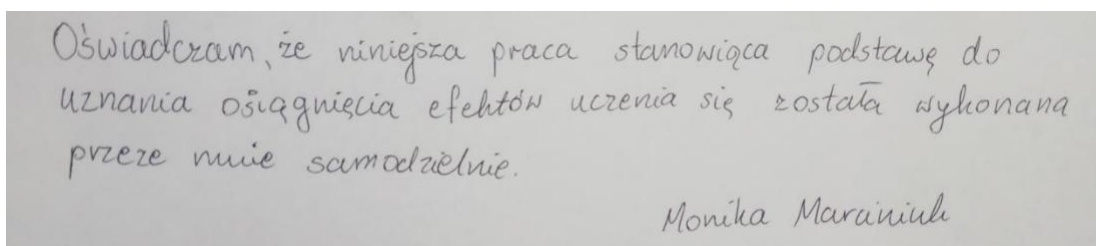 Oświadczam, że niniejsza praca stanowiąca podstawę do
uznania osiągnięcia efektów uczenia się została wykonana
przeze mnie samodzielnie.
Monika